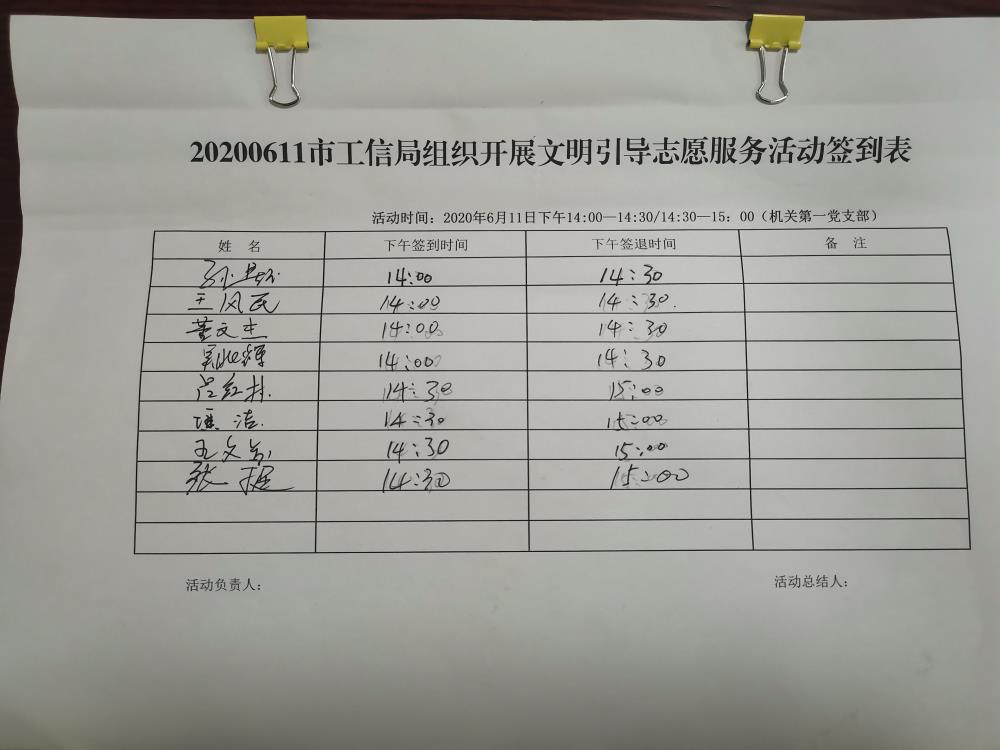 20200611市工信局组织开展文明引导志愿服务活动签到表
活动时间：2020年6月11日下午14:00—14:30/14:30—15：00（机关第一党支部）
姓 名 下午签到时间 下午签退时间 备 注
14:00 14:30
王凤民 14:00 14:30.
董文杰 14:00 14:30
14:00 14:30
14:30 15:00
洁 14:30 15:00
14:30 15:00
张 14:30 15:00
活动负责人： 活动总结人：